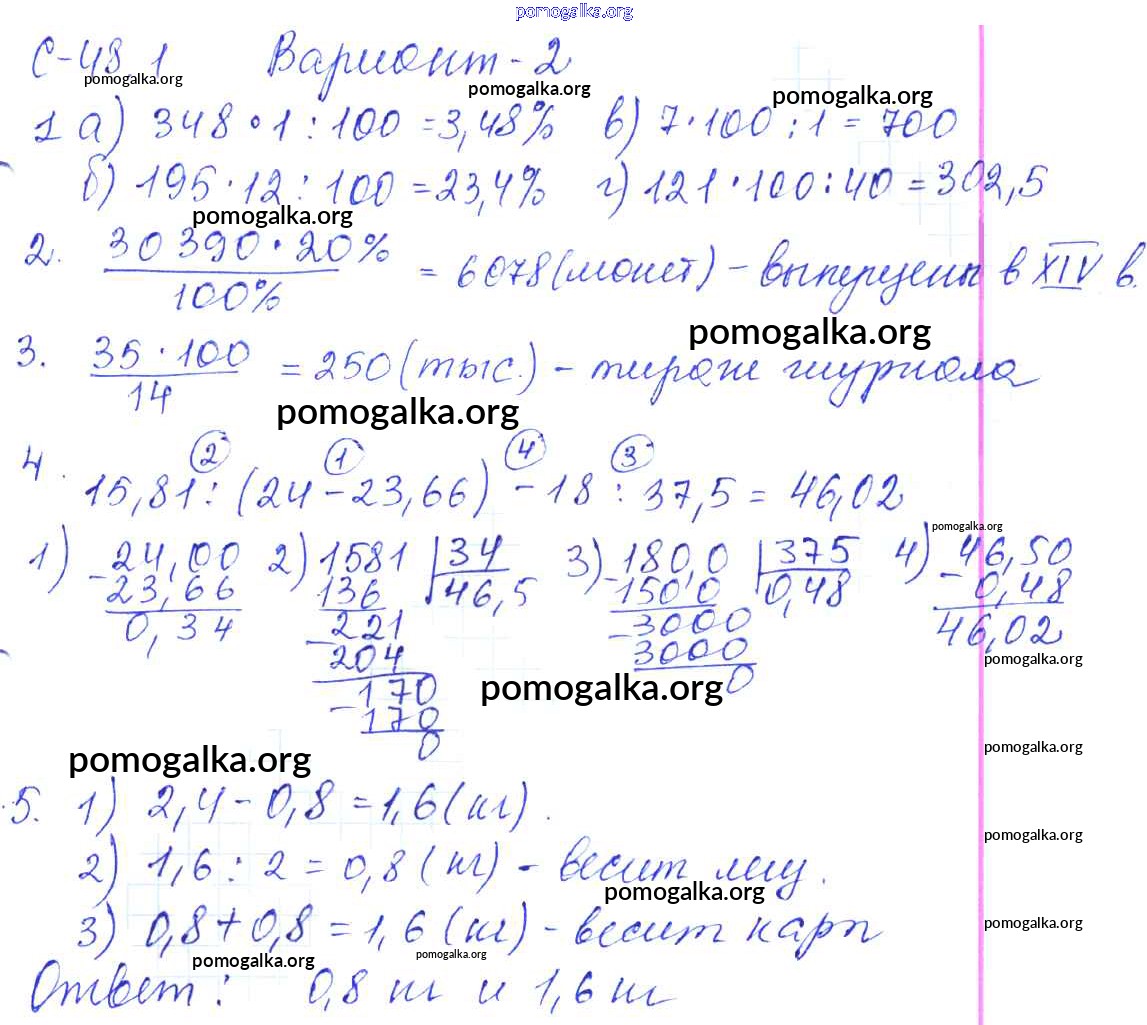 pomogalka.org
С-48 1 Вариант-2
pomogalka.org pomogalka.org pomogalka.org
1 а) 348 · 1 : 100 = 3,48% в) 7 · 100 : 1 = 700
б) 195 · 12 : 100 = 23,4% г) 121 · 100 : 40 = 302,5
pomogalka.org
2. 30 390 · 20% / 100% = 6078 (монет) – выпущены в XIV в.
pomogalka.org
3. 35 · 100 / 14 = 250 (тыс.) – тираж журнала
pomogalka.org
2 1 4 3
4. 15,81 : (24 – 23,66) – 18 : 37,5 = 46,02
pomogalka.org
1) 24,00 2) 1581 | 34 3) 180,0 | 375 4) 46,50
- 23,66 136 46,5 - 150,0 0,48 - 0,48
0,34 - 221 - 3000 46,02
204 3000 pomogalka.org
- 170 pomogalka.org 0
170
0
pomogalka.org pomogalka.org
5. 1) 2,4 – 0,8 = 1,6 (кг).
pomogalka.org
2) 1,6 : 2 = 0,8 (кг) – весит лещ.
pomogalka.org
3) 0,8 + 0,8 = 1,6 (кг) – весит карп
pomogalka.org
pomogalka.org pomogalka.org
Ответ: 0,8 кг и 1,6 кг